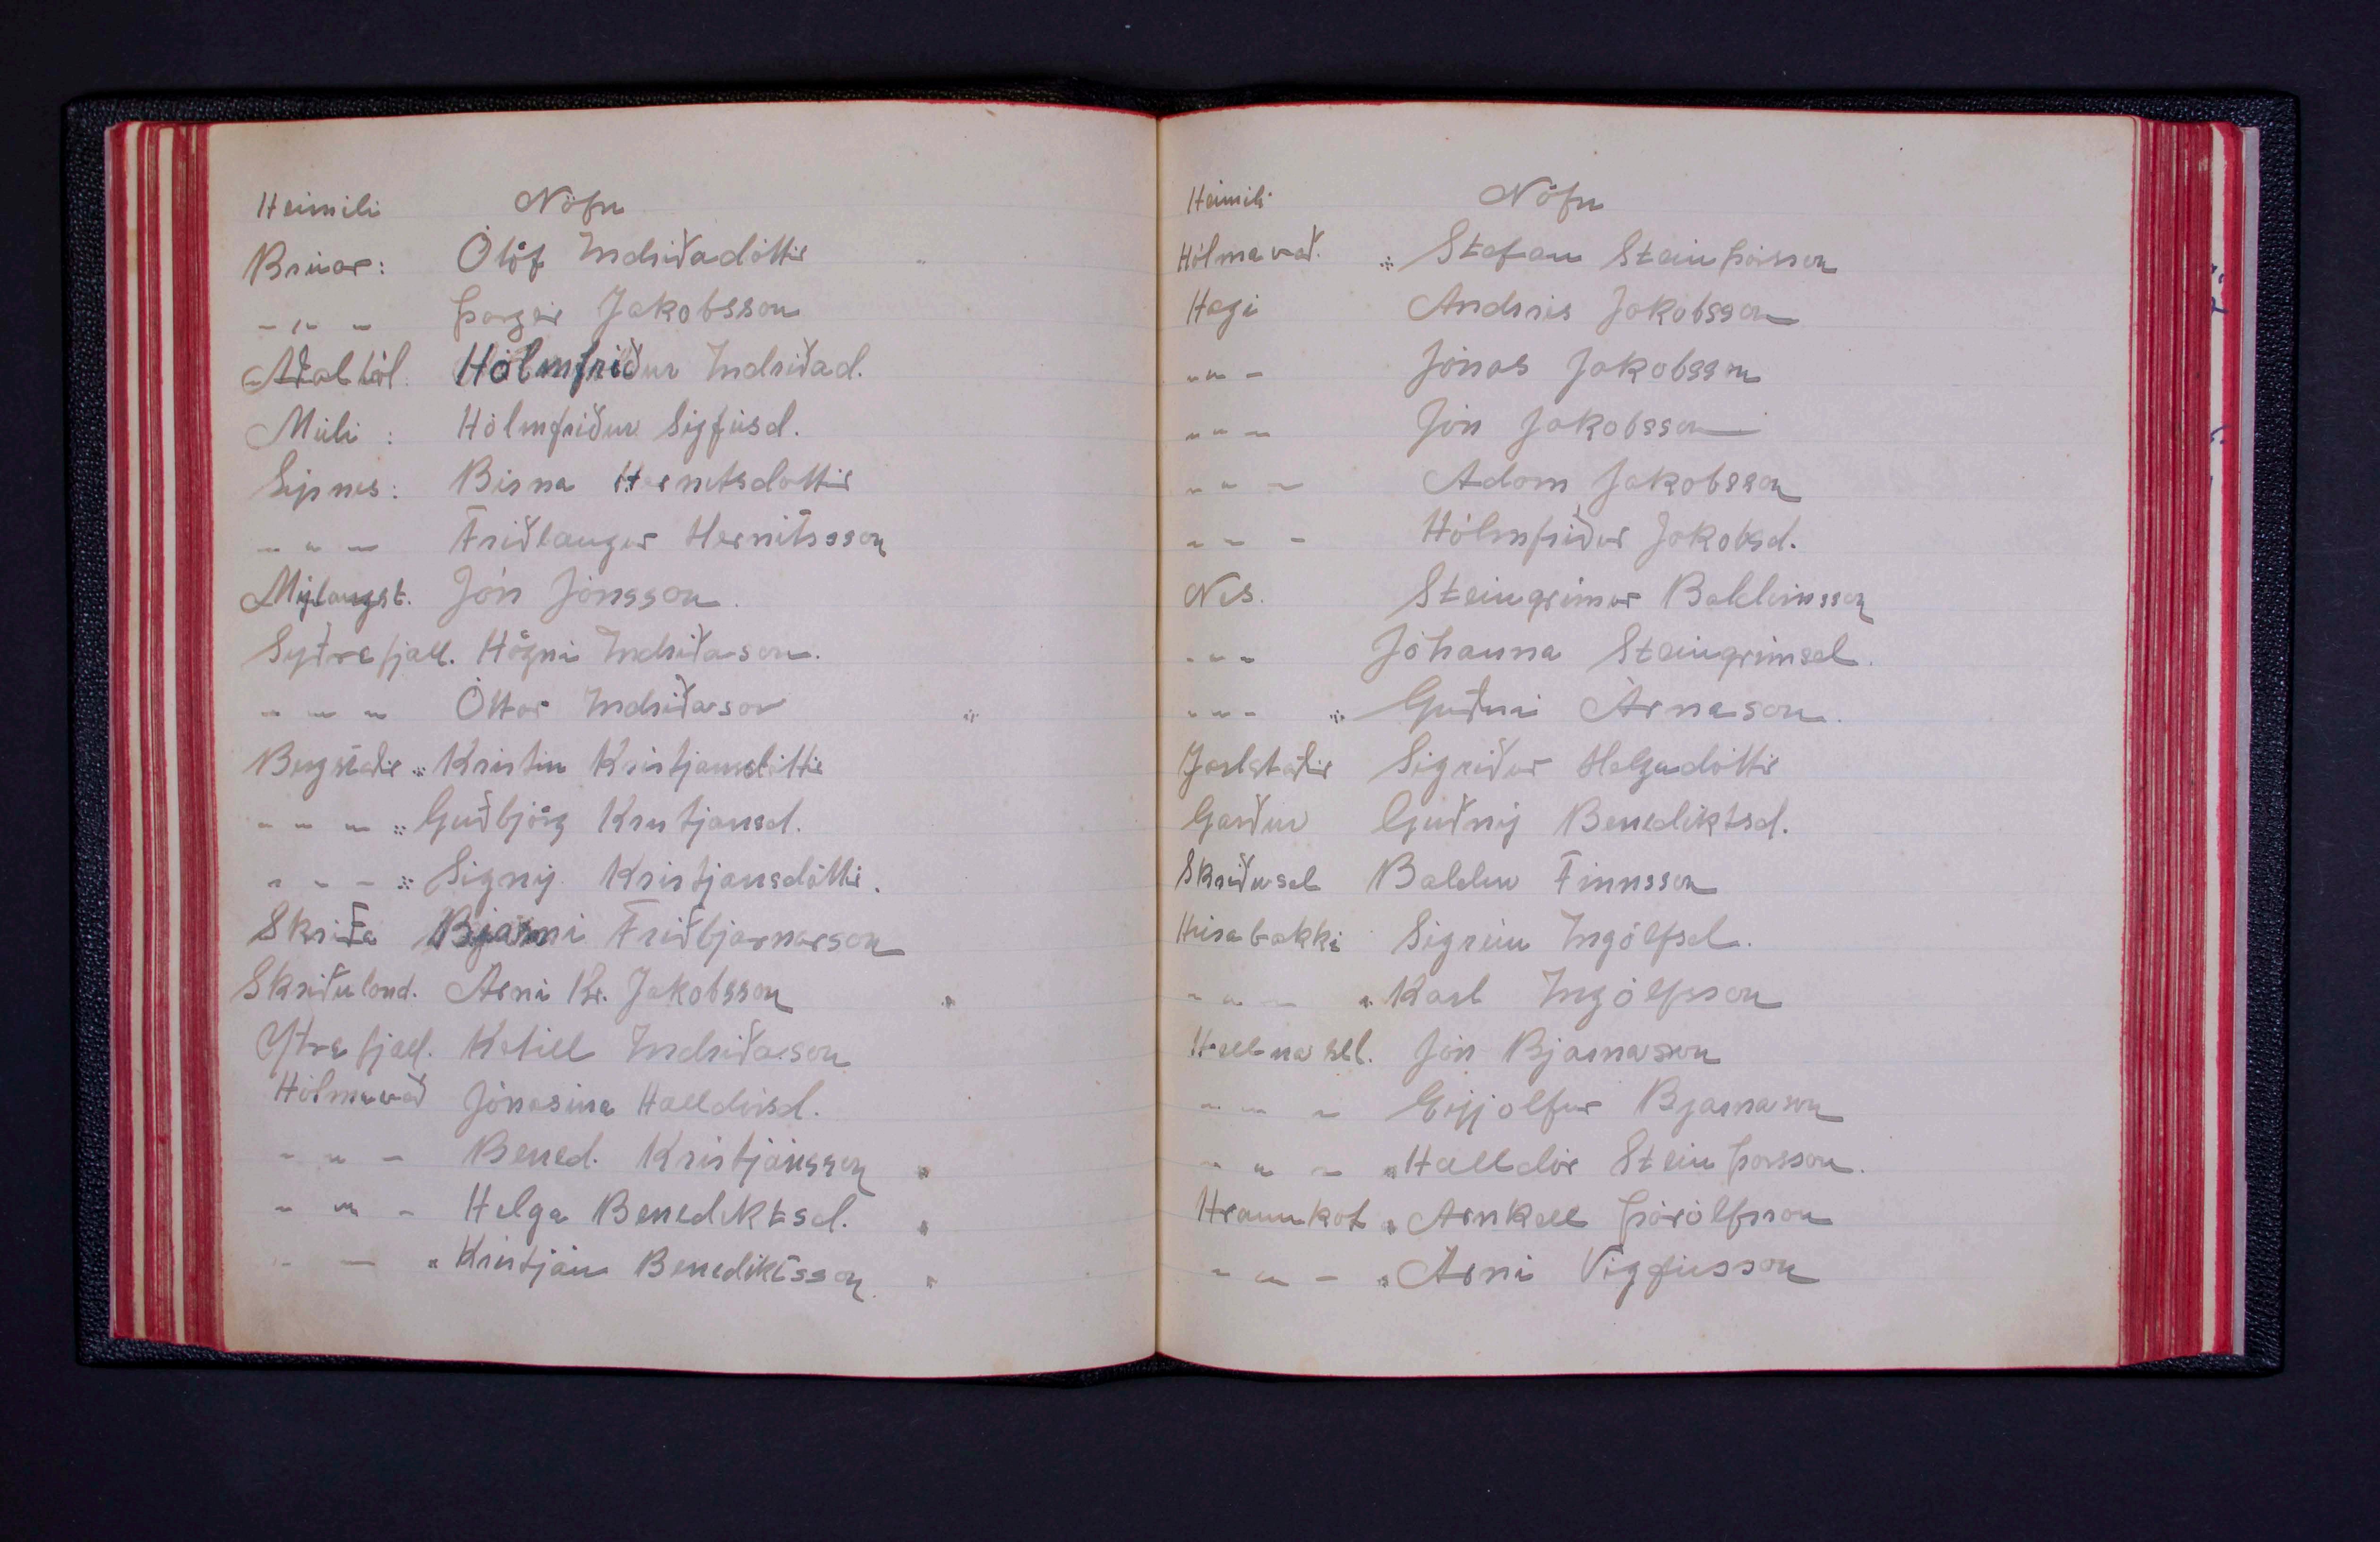 Heimili Nöfn
Brúar: Ólöf Indriðadóttir
- " - Þorgeir Jakobsson
Aðalból: Hólmfríður Indriðad.
Múli: Hólmfríður Sigfúsd.
Sýrnes: Birna Hernitsdóttir
- " - Friðlaugur Hernitsson
Mýlaugst. Jón Jónsson.
Syðrafjall. Högni Indriðason.
- " - Óttar Indriðason
Bergstaðir Kristín Kristjánsdóttir
- " - Guðbjörg Kristjánsd.
- " - Signý Kristjánsdóttir.
Skriða Bjarni Friðbjarnarson
Skriðuland. Árni Kr. Jakobsson
Ytrafjall. Ketill Indriðason
Hólmavað Jónasína Halldórsd.
- " - Bened. Kristjánsson
- " - Helga Benediktsd.
- - Kristján Benediktsson
Heimili Nöfn
Hólmavað. Stefán Steinþórsson
Hagi Andrés Jakobsson
- " - Jónas Jakobsson
- " - Jón Jakobsson
- " - Adam Jakobsson
- " - Hólmfríður Jakobsd.
Nes. Steingrímur Baldvinsson
- " - Jóhanna Steingrímsd.
- " - Guðni Árnason.
Jarlstaðir Sigríður Helgadóttir
Garður Guðný Benediktsd.
Skriðusel Baldur Finnsson
Húsabakki Sigrún Ingólfsd.
- " - Karl Ingólfsson
Hellnasel. Jón Bjarnason
- " - Eyjólfur Bjarnason
- " - Halldór Steinþórsson.
Hraunkot Arnkell Þórólfsson
- " - Árni Vigfússon